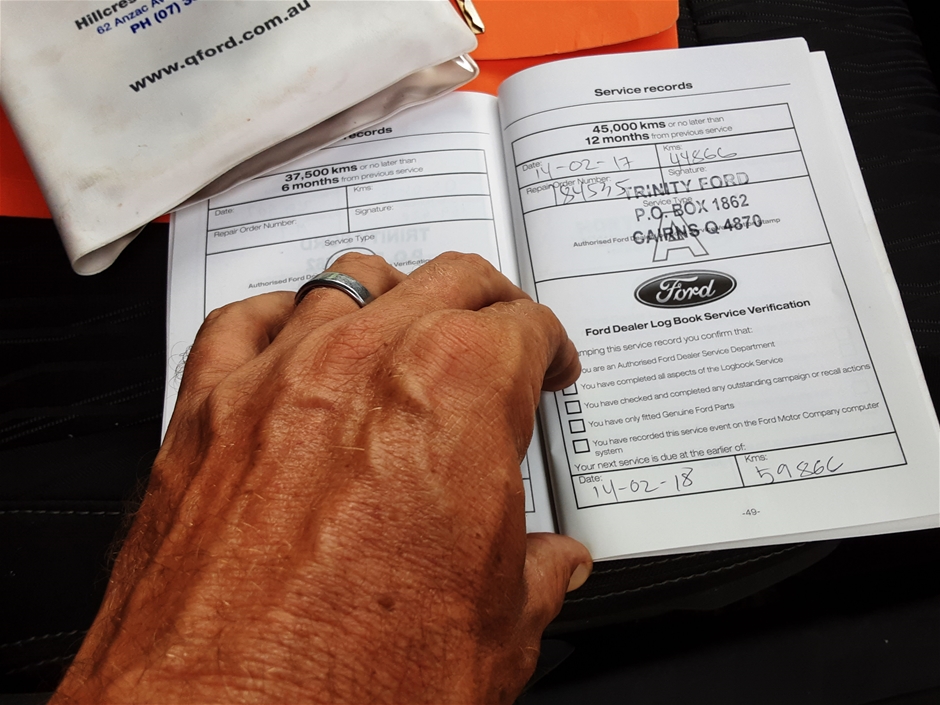 Hillcres
62 Anzac Av
PH (07) 3
www.qford.com.au
records
37,500 kms or no later than
6 months from previous service
Date:
Kms:
Repair Order Number:
Signature:
Service Type
Authorised Ford Dealer
Verification
Service records
45,000 kms or no later than
12 months from previous service
Date: 14-02-17
Kms: 44866
Repair Order Number: 184535
Signature:
Service Type
TRINITY FORD
P.O. BOX 1862
CAIRNS Q 4870
Authorised Ford
stamp
A
Ford
Ford Dealer Log Book Service Verification
mping this service record you confirm that:
ou are an Authorised Ford Dealer Service Department
You have completed all aspects of the Logbook Service
You have checked and completed any outstanding campaign or recall actions
You have only fitted Genuine Ford Parts
You have recorded this service event on the Ford Motor Company computer
system
Your next service is due at the earlier of:
Date: 14-02-18
Kms: 59866
-49-